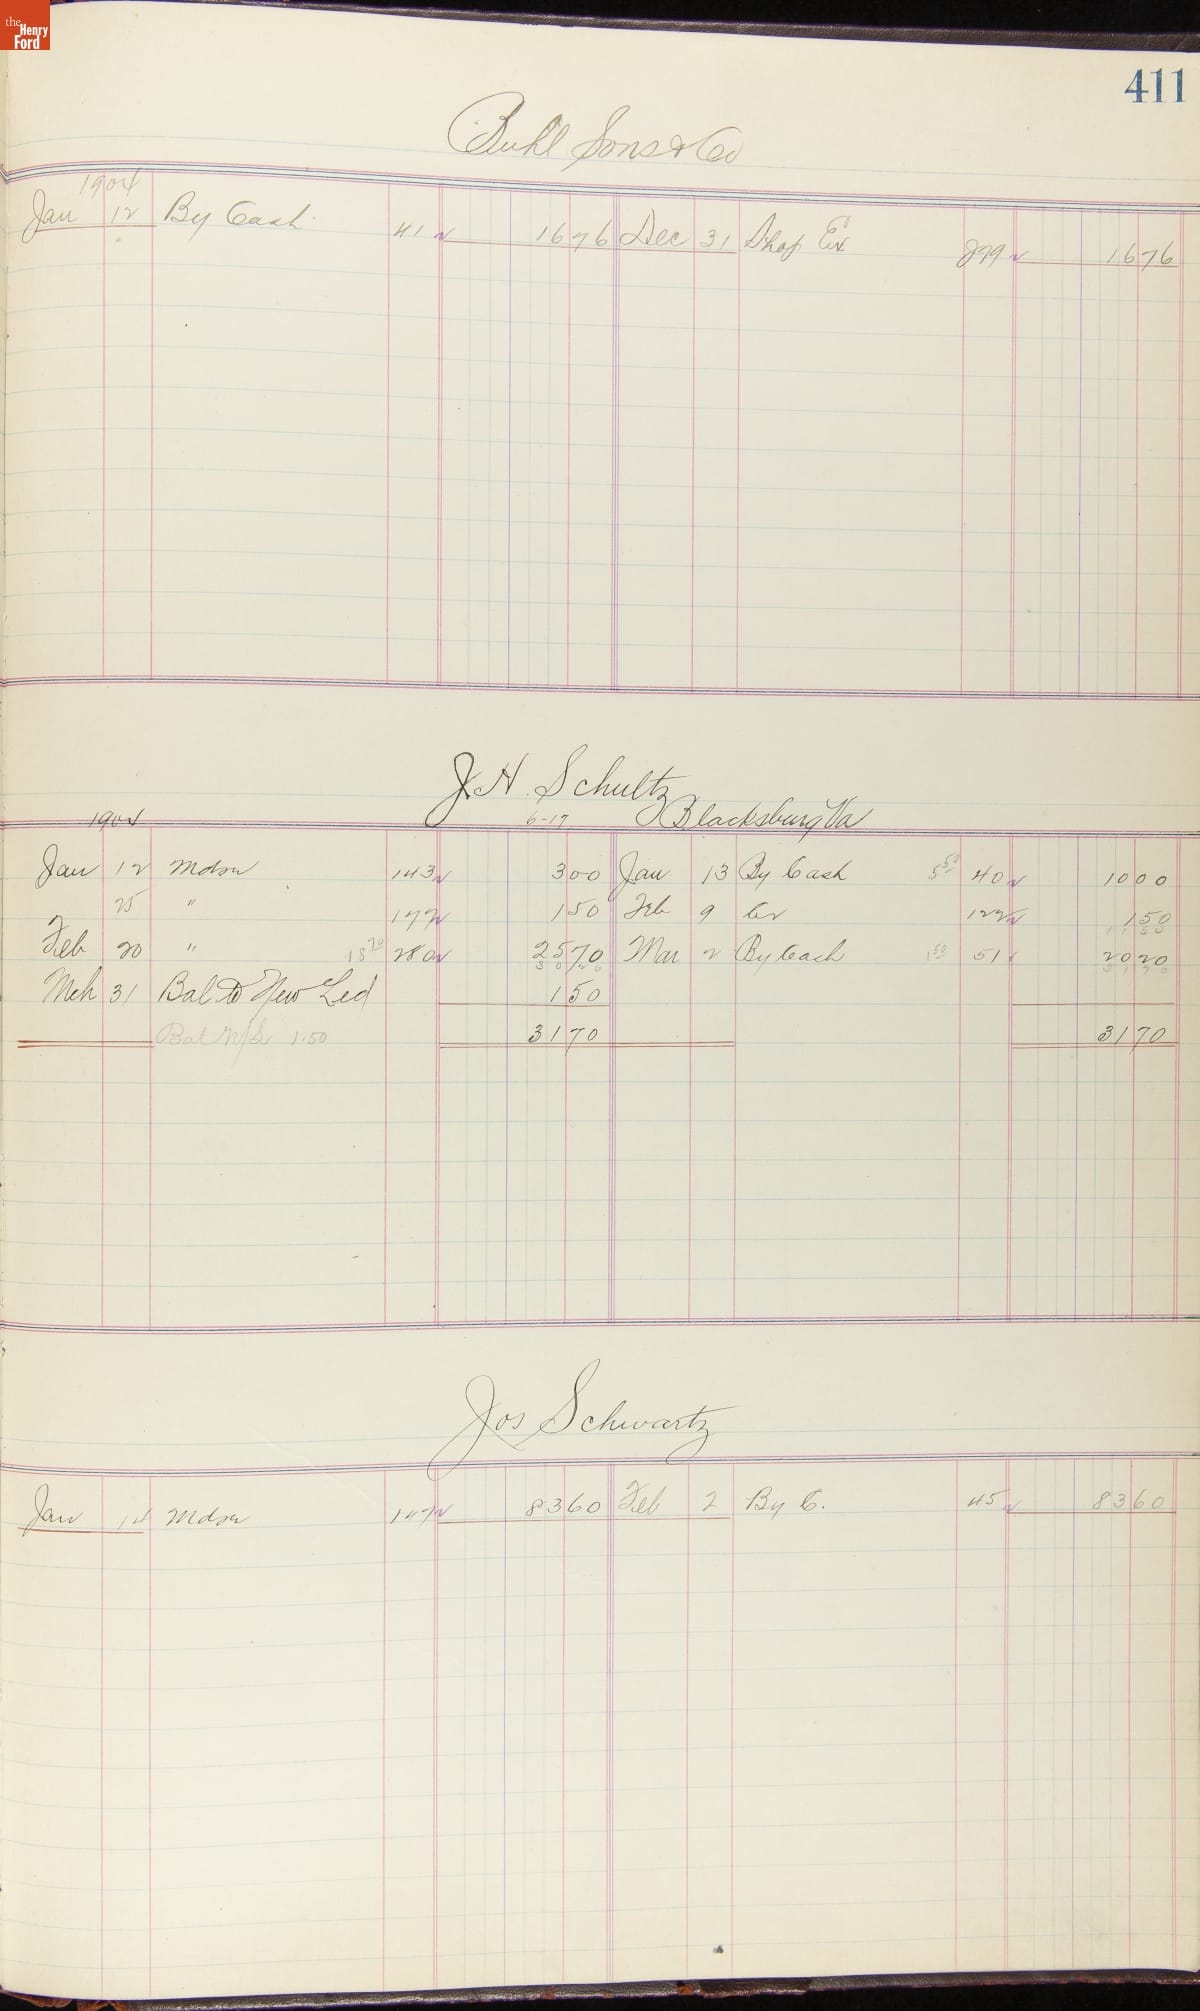 the Henry Ford
411
Buhl Sons & Co
1904
Jan 12 By Cash 41 16 76 Dec 31 Shop Ex 279 16 76
J. H. Schultz
1904 6-17 Blacksburg Va
Jan 12 Mdse 143 3 00 Jan 13 By Cash 5 50 40 10 00
25 " 177 1 50 Feb 9 Cr 122 1 50
11 50
Feb 20 " 18 70 280 25 70 Mar 2 By Cash 1 50 51 20 20
30 20 31 70
Mch 31 Bal to New Led 1 50
Bal N/L 1.50 31 70 31 70
Jos Schwartz
Jan 14 Mdse 147 83 60 Feb 2 By C. 45 83 60